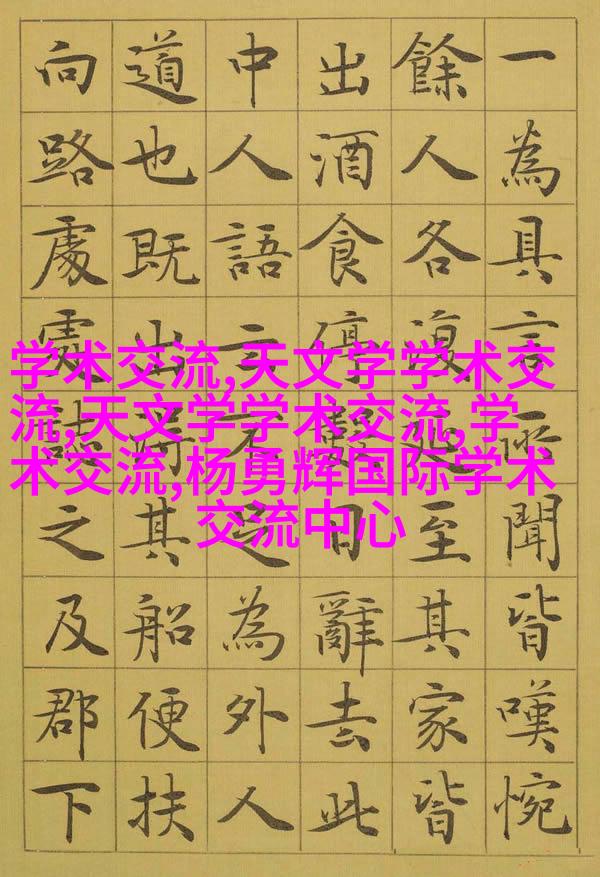 一為具言所聞皆嘆惋
餘人各復延至其家皆
出酒食停數日辭去此
中人語云不足為外人
道也既出得其船便扶
向路處處誌之及郡下
学术交流,天文学学术交
流,天文学学术交流,学
术交流,杨勇辉国际学术
交流中心